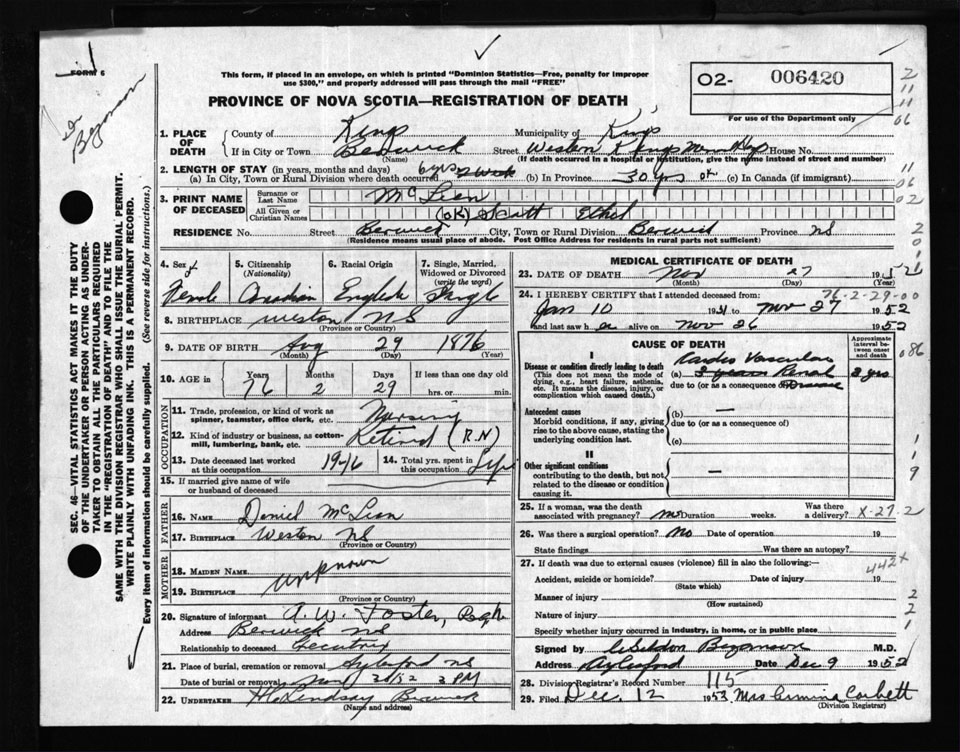 FORM 6
This form, if placed in an envelope, on which is printed "Dominion Statistics—Free, penalty for improper
use $300," and properly addressed will pass through the mail "FREE"
O2- 006420
For use of the Department only
PROVINCE OF NOVA SCOTIA—REGISTRATION OF DEATH
Dr Bezanson
1. PLACE OF DEATH County of Kings Municipality of Kings
If in City or Town Berwick (Name) Street Weston Kings Hosp House No.
(If death occurred in a hospital or institution, give the name instead of street and number)
2. LENGTH OF STAY (in years, months and days)
(a) In City, Town or Rural Division where death occurred 6 yrs 2 week (b) In Province 30 yrs ok (c) In Canada (if immigrant)
3. PRINT NAME OF DECEASED Surname or Last Name McLean
All Given or Christian Names (OK) Scott Ethel
RESIDENCE No. Street Berwick City, Town or Rural Division Berwick Province NS
(Residence means usual place of abode. Post Office Address for residents in rural parts not sufficient)
4. Sex f Female
5. Citizenship (Nationality) Canadian
6. Racial Origin English
7. Single, Married, Widowed or Divorced (write the word) Single
8. BIRTHPLACE Weston NS
(Province or Country)
9. DATE OF BIRTH Aug 29 1876
(Month) (Day) (Year)
10. AGE in Years Months Days If less than one day old
76 2 29 hrs. or min.
OCCUPATION
11. Trade, profession, or kind of work as spinner, teamster, office clerk, etc. Nursing
12. Kind of industry or business, as cotton-mill, lumbering, bank, etc. Retired (RN)
13. Date deceased last worked at this occupation 1946 14. Total yrs. spent in this occupation Life
15. If married give name of wife or husband of deceased
FATHER
16. NAME Daniel McLean
17. BIRTHPLACE Weston NS
(Province or Country)
MOTHER
18. MAIDEN NAME
19. BIRTHPLACE unknown
(Province or Country)
20. Signature of informant A. W. Foster,
Address Berwick NS
Relationship to deceased
21. Place of burial, cremation or removal Aylesford NS
Date of burial or removal Nov 30/52 2 PM
22. UNDERTAKER H Lindsay Berwick
(Name and address)
MEDICAL CERTIFICATE OF DEATH
23. DATE OF DEATH Nov 27 1952
(Month) (Day) (Year)
24. I HEREBY CERTIFY that I attended deceased from: 76-2-29-00
Jan 10 1951 to Nov 27 1952
and last saw her alive on Nov 26 1952
CAUSE OF DEATH
Approximate interval between onset and death
I
Disease or condition directly leading to death
(This does not mean the mode of dying, e.g., heart failure, asthenia, etc. It means the disease, injury, or complication which caused death.)
Cardio Vascular
(a) Renal 3 yrs
due to (or as a consequence of) Disease
Antecedent causes
Morbid conditions, if any, giving rise to the above cause, stating the underlying condition last.
(b) —
due to (or as a consequence of)
(c)
II
Other significant conditions
contributing to the death, but not related to the disease or condition causing it.
—
25. If a woman, was the death associated with pregnancy? no Duration weeks. Was there a delivery? X-27-2
26. Was there a surgical operation? No Date of operation 19
State findings Was there an autopsy?
27. If death was due to external causes (violence) fill in also the following:— 442X
Accident, suicide or homicide? Date of injury 19
(State which)
Manner of injury
(How sustained)
Nature of injury
Specify whether injury occurred in industry, in home, or in public place
Signed by Bezanson M.D.
Address Aylesford Date Dec 9 1952
28. Division Registrar's Record Number 115
29. Filed Dec. 12 1953 Mrs Corbett
(Division Registrar)
2 11 11 06
11 06 02
086
1 1 9
2 2 1
SEC. 46—VITAL STATISTICS ACT MAKES IT THE DUTY
OF THE UNDERTAKER OR PERSON ACTING AS UNDER-
TAKER TO OBTAIN ALL THE PARTICULARS REQUIRED
IN THE "REGISTRATION OF DEATH" AND TO FILE THE
SAME WITH THE DIVISION REGISTRAR WHO SHALL ISSUE THE BURIAL PERMIT.
WRITE PLAINLY WITH UNFADING INK. THIS IS A PERMANENT RECORD.
Every item of information should be carefully supplied. (See reverse side for instructions.)